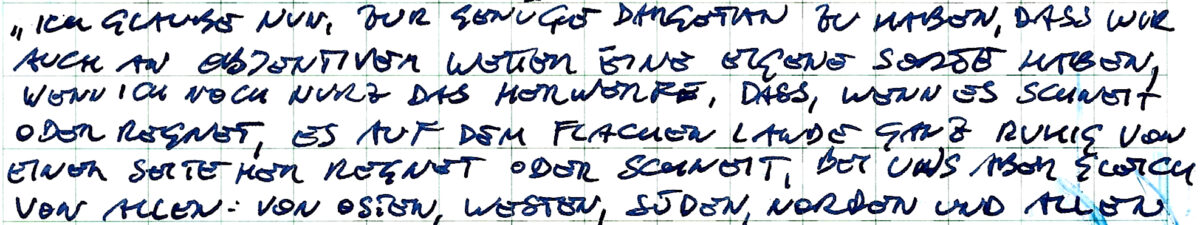 „ICH GLAUBE NUN, ZUR GENÜGE DARGETAN ZU HABEN, DASS WIR
AUCH AN OBJEKTIVEM WETTER EINE EIGENE SORTE HABEN,
WENN ICH NOCH KURZ DAS HERWERFE, DASS, WENN ES SCHNEIT
ODER REGNET, ES AUF DEM FLACHEN LANDE GANZ RUHIG VON
EINER SEITE HER REGNET ODER SCHNEIT, BEI UNS ABER GLEICH
VON ALLEN: VON OSTEN, WESTEN, SÜDEN, NORDEN UND ALLEN